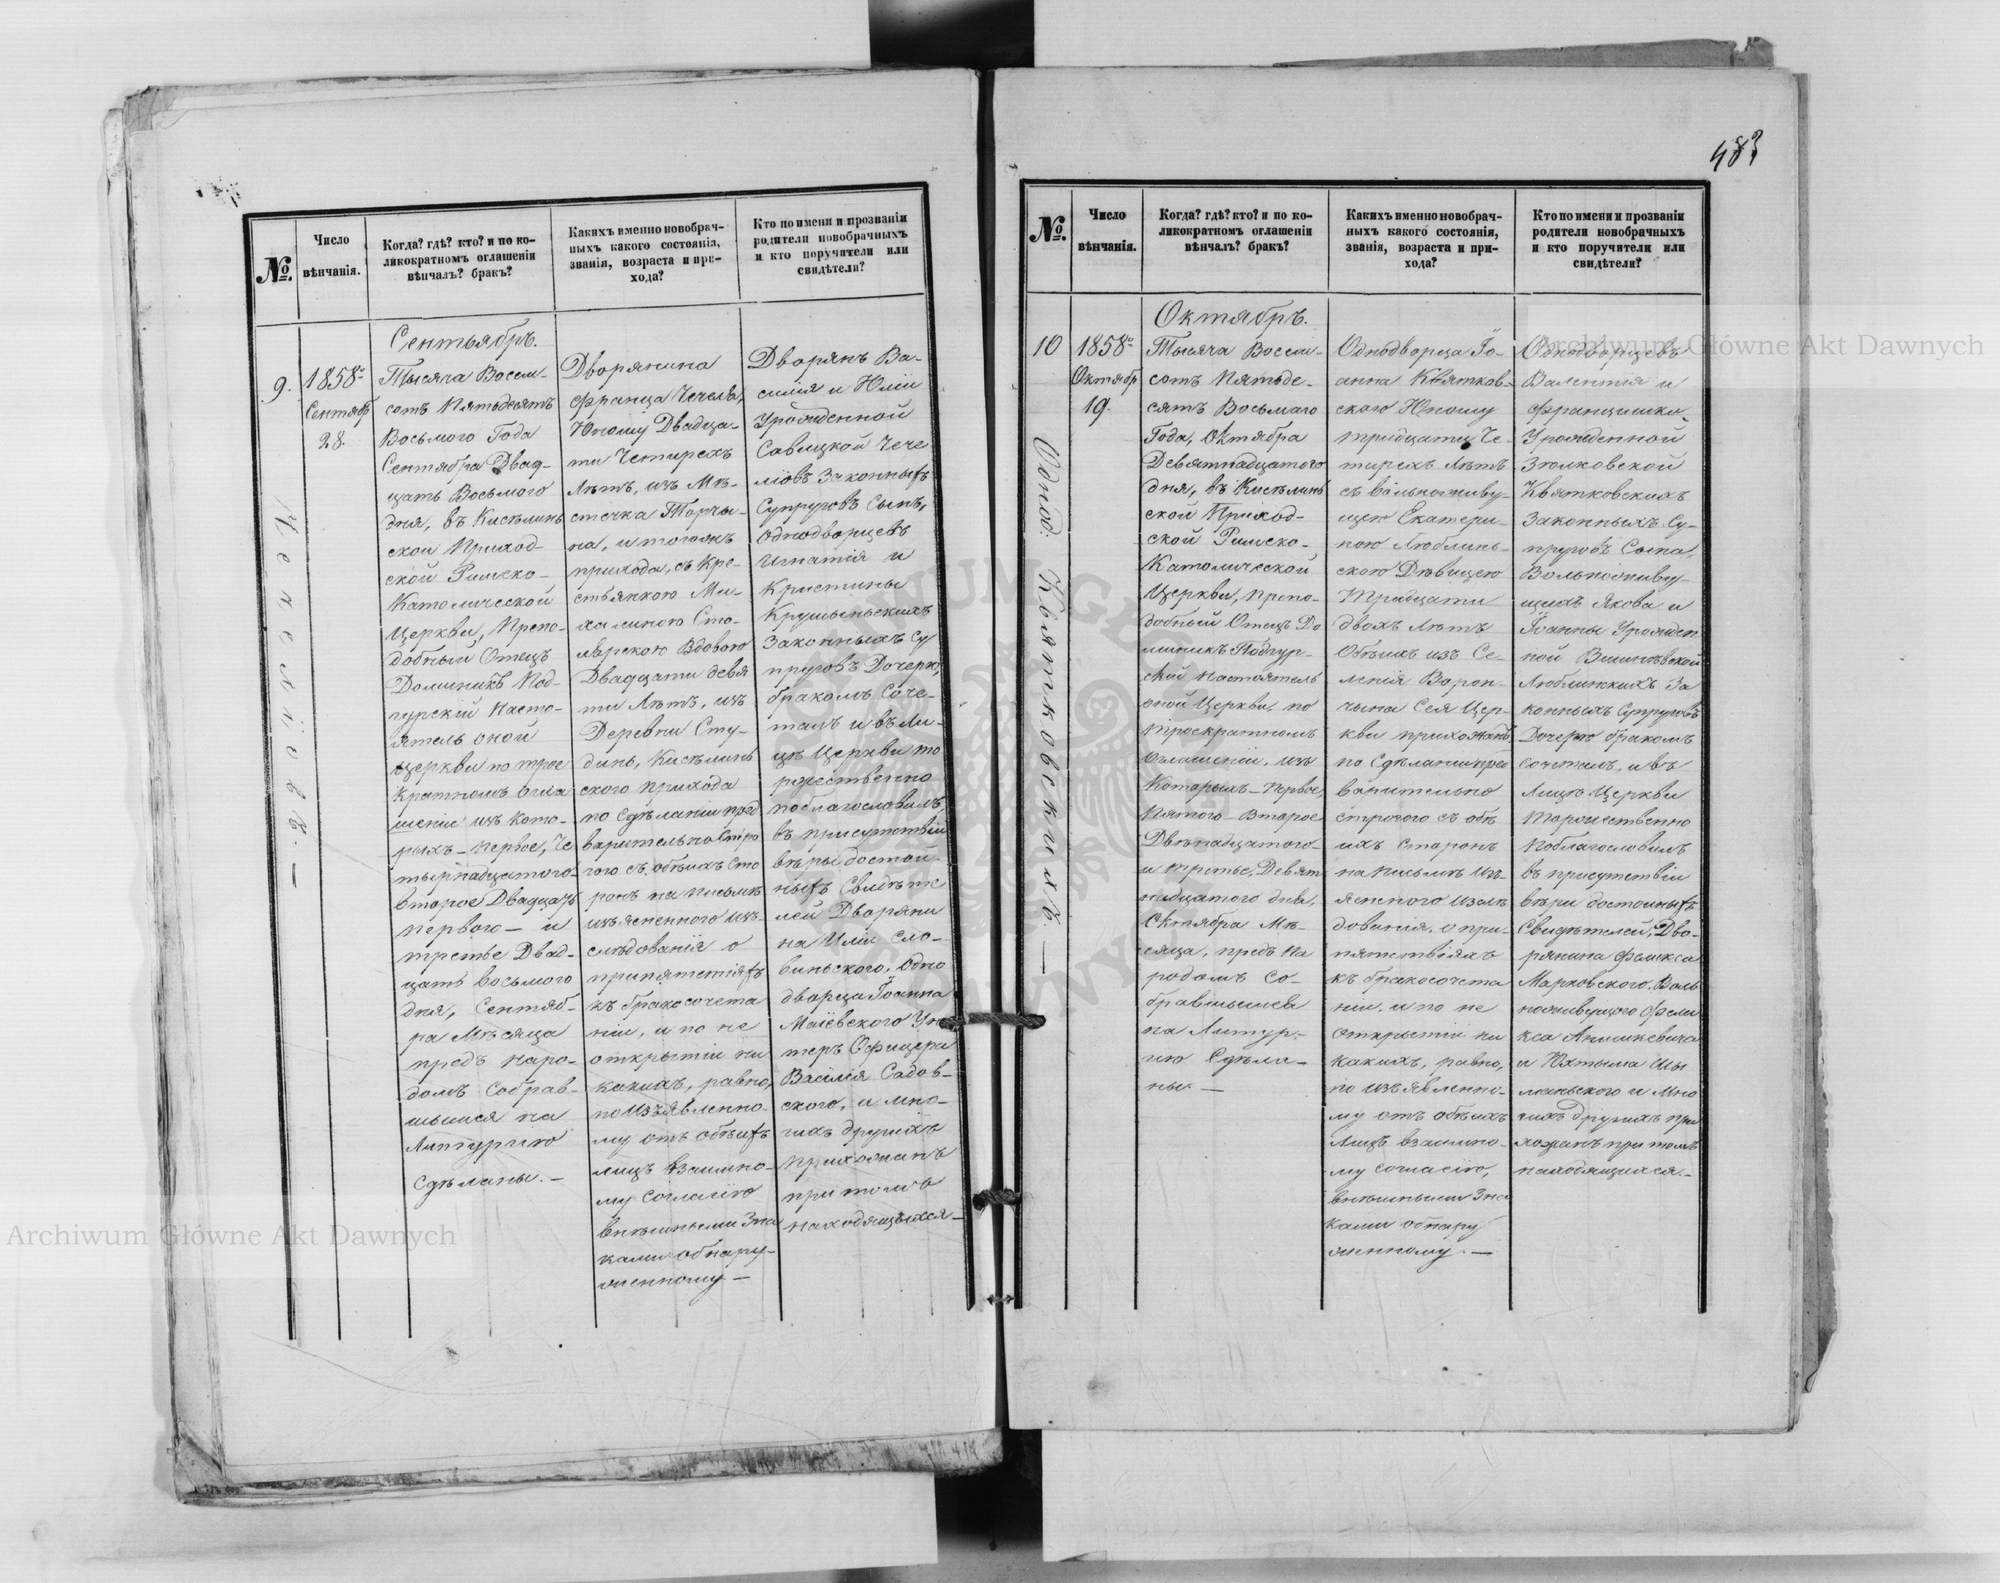 483
№.
Число
вѣнчанія.
Когда? гдѣ? кто? и по ко-
ликократномъ оглашеніи
вѣнчалъ? бракъ?
Какихъ именно новобрач-
ныхъ какого состоянія,
званія, возраста и при-
хода?
Кто по имени и прозванію
родители новобрачныхъ
и кто поручители или
свидѣтели?
9.
1858го
Сентябр
28.
Чечеліовъ. —
Сентьябрь.
Тысяча Восем-
сотъ Пятьдесятъ
Восьмого Года
Сентября Двад-
цать Восьмого
дня, въ Кисѣлинь
ской Приход-
ской Римско-
Католической
Церкви, Препо-
добный Отецъ
Доминикъ Под-
гурскій Насто-
ятель оной
Церкви по трое
Кратномъ огла
шеніи изъ кото-
рыхъ — первое, Че
тырнадцатого-
второе Двадцать
первого — и
третье Двад-
цать восьмого
дня, Сентяб-
ра Мѣсяца
предъ наро-
домъ Собрав-
шымся на
Литургію
Сдѣланы. —
Дворянина
Франца Чечеля,
Юношу Двадца-
ти Четырехъ
Лѣтъ, изъ Мѣ-
стечка Торчы-
на, и тогожъ
прихода, съ Кре-
стьянкою Ми-
халиною Сто-
лярскою Вдовою
Двадцати девя
ти Лѣтъ, изъ
Деревни Сту-
динь, Кисѣлинь
ского прихода
по Сдѣланіи пред
варительно Стро
гого съ обѣихъ Сто
ронъ на письмѣ
изъясненного из-
слѣдованія о
припятстіяхъ
къ бракосочета
ніи, и по не
открытіи ни
какихъ, равно,
по изъявленно-
му отъ обѣихъ
лицъ взаимно-
му согласію
внѣшными Зна
ками обнару-
женному —
Дворянъ Ва-
силія и Юліи
Урожденной
Савицкой Чече
ліовъ Законныхъ
Супруговъ Сынъ,
Однодворцевъ
Игнатія и
Кристины
Крушыньскихъ
Законныхъ Су
пруговъ Дочерью,
бракомъ Соче-
талъ и въ Ли-
цѣ Церкви то
ржественно
поблагословилъ
въ присутствіи
вѣры достой-
ныхъ Свидѣте
лей Дворяни
на Иліи Сло-
виньского, Одно
дворца Іоанна
Маіевского Ун
теръ Офицера
Василія Садов-
ского, и мно-
гихъ другихъ
Прихожанъ
при томъ
находящыхся —
№.
Число
вѣнчанія.
Когда? гдѣ? кто? и по ко-
ликократномъ оглашеніи
вѣнчалъ? бракъ?
Какихъ именно новобрач-
ныхъ какого состоянія,
званія, возраста и при-
хода?
Кто по имени и прозванію
родители новобрачныхъ
и кто поручители или
свидѣтели?
10
1858го
Октябр
19.
Однод: Квятковскихъ. —
Октябрь.
Тысяча Восем-
сотъ Пятьде-
сятъ Восьмаго
Года, Октября
Девятнадцатого
дня, въ Кисѣлинь
ской Приход-
ской Римско-
Католической
Церкви, Препо-
добный Отецъ До
миникъ Подгур-
скій Настоятель
оной Церкви, по
троекратномъ
Оглашеніи, изъ
Которыхъ — Первое,
Пятого — Второе
Двѣнадцатого
и третье, Девят
надцатого дня,
Октября Мѣ-
сяца, предъ На
родомъ Со-
бравшымся
на Литур-
гію Сдѣла-
ны. —
Однодворца Іо-
анна Квятков-
ского Юношу
тридцати Че-
тырехъ Лѣтъ
съ вольноживу-
щею Екатери-
ною Люблинь-
скою Дѣвицею
Тридцати
двохъ Лѣтъ
Обѣихъ изъ Се-
ленія Ворон-
чына Сея Цер-
кви прихожанъ,
по Сдѣланіи пред
варительно
строгого съ обѣ
ихъ Сторонъ
на письмѣ изъ-
ясненого изслѣ
дованія, о при-
пятствіяхъ
къ бракосочета
ніи, и по не
открытіи ни
какихъ, равно,
по изъявленно-
му отъ обѣихъ
Лицъ взаимно-
му согласію,
внѣшными Зна
ками обнару
женному. —
Однодворцевъ
Валентія и
Францишки,
Урожденной
Зюлковской
Квятковскихъ
Законныхъ Су-
пруговъ Сына,
Вольноживу-
щихъ Якова и
Іоанны Урожден
ной Вишнѣвской
Люблинскихъ За
конныхъ Супруговъ
Дочерью бракомъ
сочеталъ, и въ
Лицѣ Церкви
Торжественно
поблагословилъ
въ присутствіи
вѣры достойныхъ
Свидѣтелей, Дво-
рянина Феликса
Марковского, Воль
ноживущого Фели
кса Анишкевича
и Юхтыма Шы
маньского и мно
гихъ другихъ при
хожанъ при томъ
находящихся. —
Archiwum Główne Akt Dawnych
Archiwum Główne Akt Dawnych